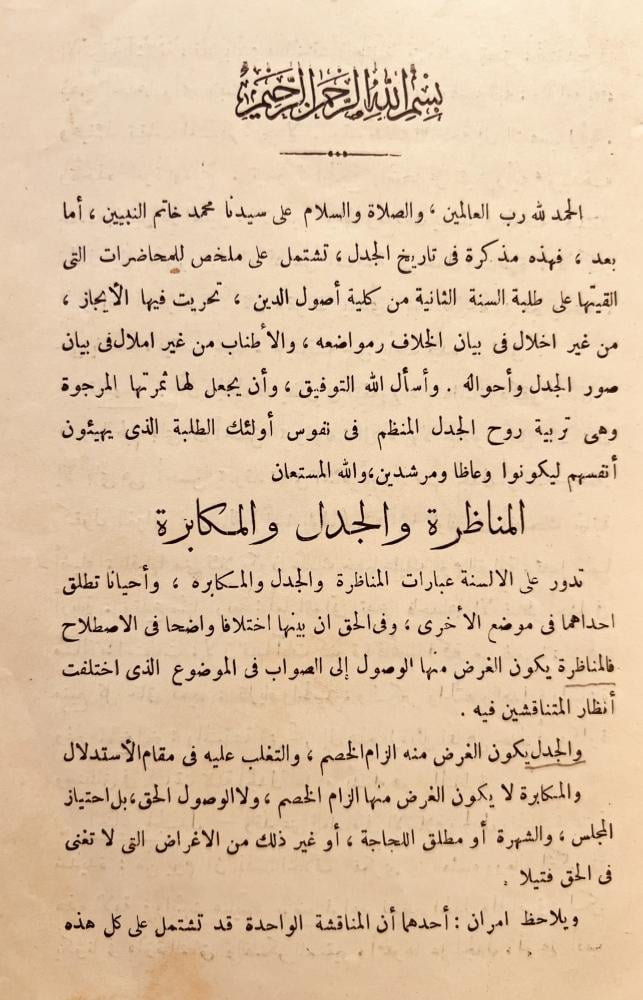 بسم الله الرحمن الرحيم
الحمد لله رب العالمين ، والصلاة والسلام على سيدنا محمد خاتم النبيين ، أما
بعد ، فهذه مذكرة فى تاريخ الجدل ، تشتمل على ملخص للمحاضرات التى
القيتها على طلبة السنة الثانية من كلية أصول الدين ، تحريت فيها الأيجاز ،
من غير اخلال فى بيان الخلاف رمواضعه ، والأطناب من غير املال فى بيان
صور الجدل وأحواله . وأسأل الله التوفيق ، وأن يجعل لها ثمرتها المرجوة
وهى تربية روح الجدل المنظم فى نفوس أولئك الطلبة الذى يهيئون
أنفسهم ليكونوا وعاظا ومرشدين،والله المستعان
المناظرة والجدل والمكابرة
تدور على الالسنة عبارات المناظرة والجدل والمكابره ، وأحيانا تطلق
احداهما فى موضع الأخرى ، وفى الحق ان بينها اختلافا واضحا فى الاصطلاح
فالمناظرة يكون الغرض منها الوصول إلى الصواب فى الموضوع الذى اختلفت
أنظار المتناقشين فيه .
والجدل يكون الغرض منه الزام الخصم ، والتغلب عليه فى مقام الأستدلال
والمكابرة لا يكون الغرض منها الزام الخصم ، ولا الوصول الحق،بل احتياز
المجلس ، والشهرة أو مطلق اللجاجة ، أو غير ذلك من الاغراض التى لا تغنى
فى الحق فتيلا .
ويلاحظ امران : أحدهما أن المناقشة الواحدة قد تشتمل على كل هذه